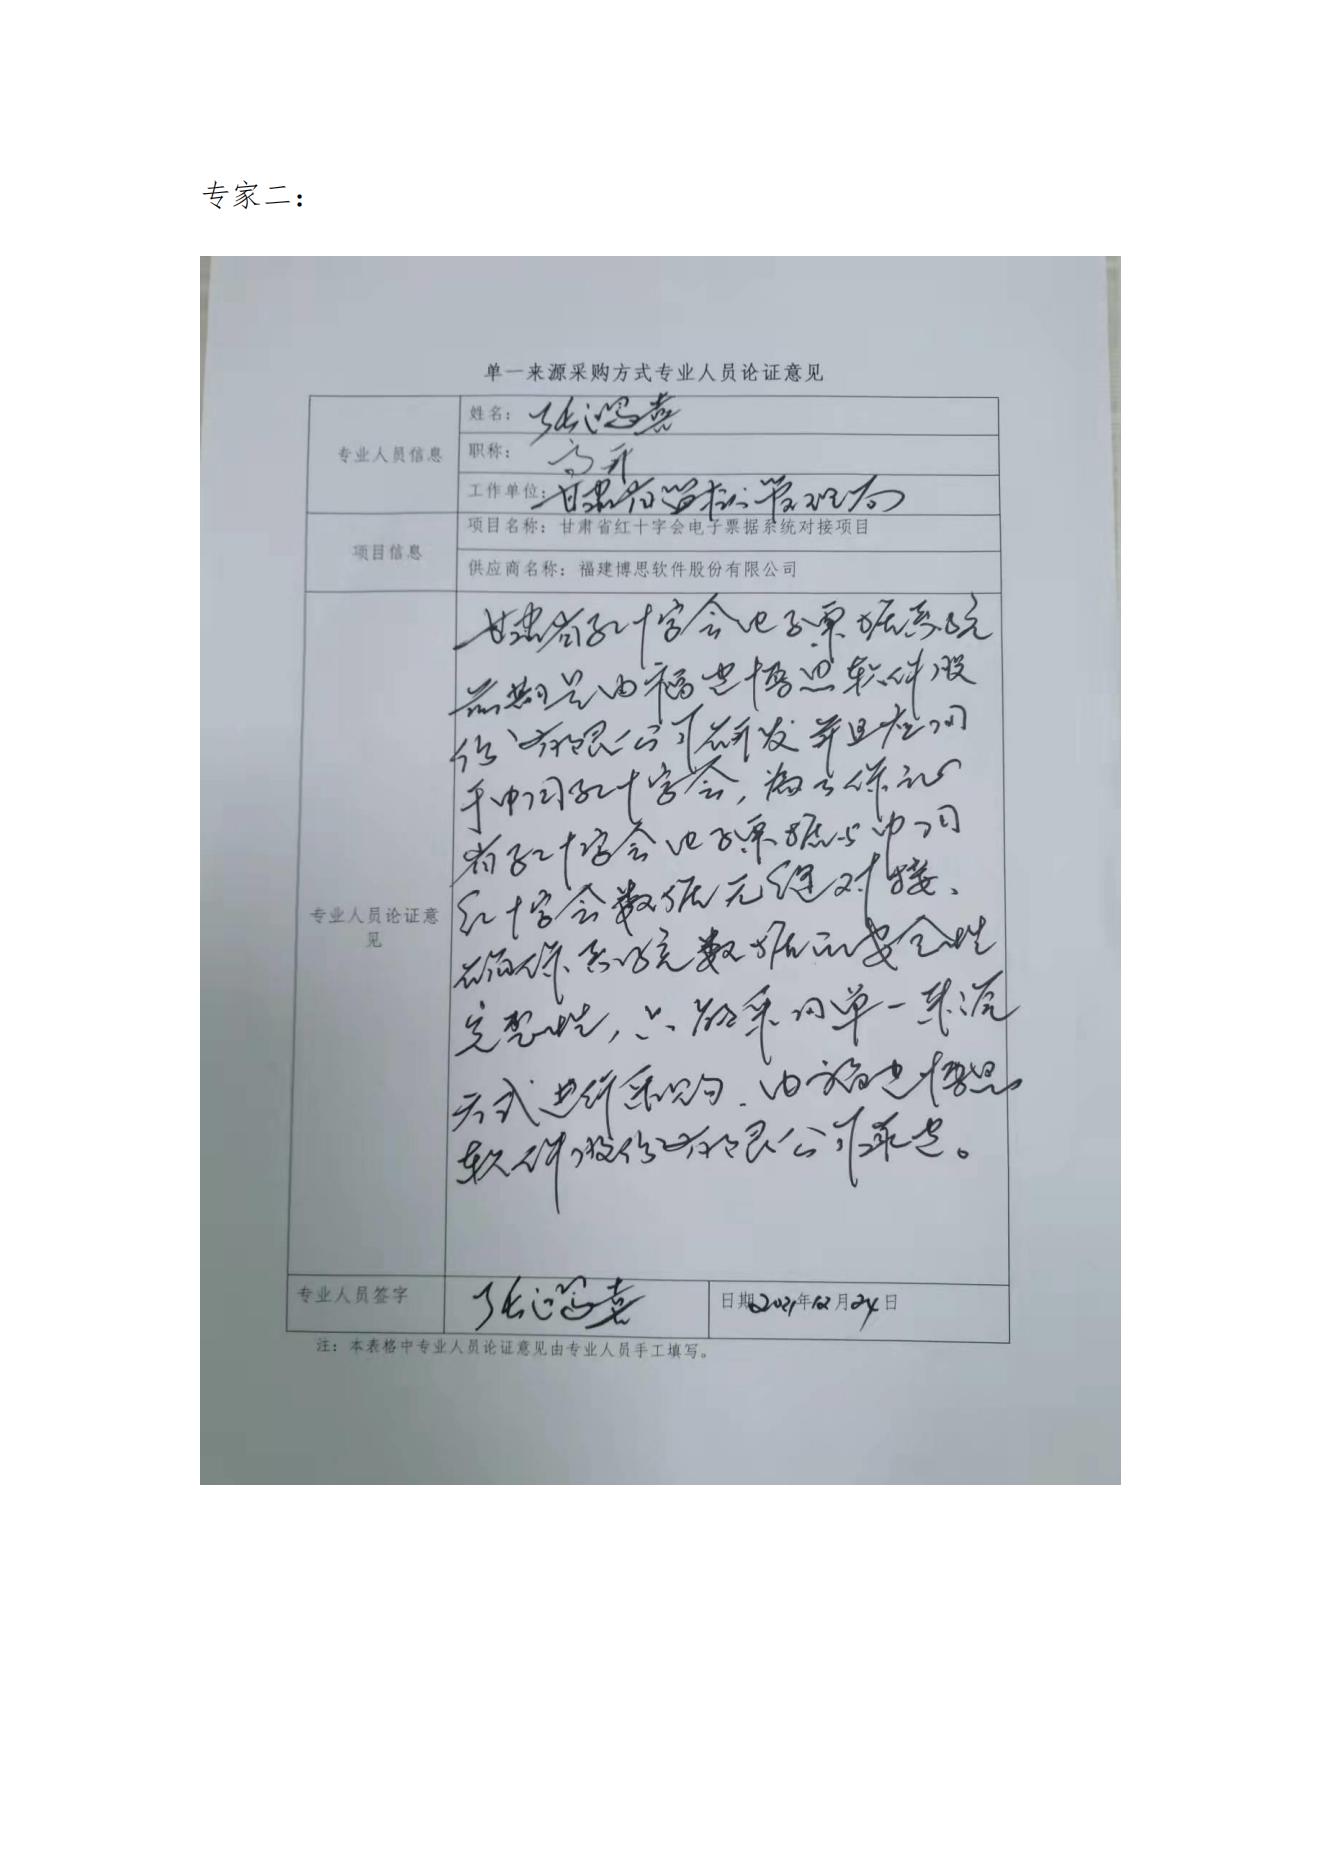 专家二：
单一来源采购方式专业人员论证意见
专业人员信息
姓名：张
职称：高工
工作单位：甘肃省管理局
项目信息
项目名称：甘肃省红十字会电子票据系统对接项目
供应商名称：福建博思软件股份有限公司
专业人员论证意见
甘肃省红十字会电子票据系统
前期是由福建博思软件股
份有限公司研发并且应用
于中国红十字会，为了保证
省红十字会电子票据与中国
红十字会数据无缝对接、
确保系统数据的安全性
完整性，只能采用单一来源
方式进行采购．由福建博思
软件股份有限公司承建。
专业人员签字
张
日期2021年12月24日
注：本表格中专业人员论证意见由专业人员手工填写。